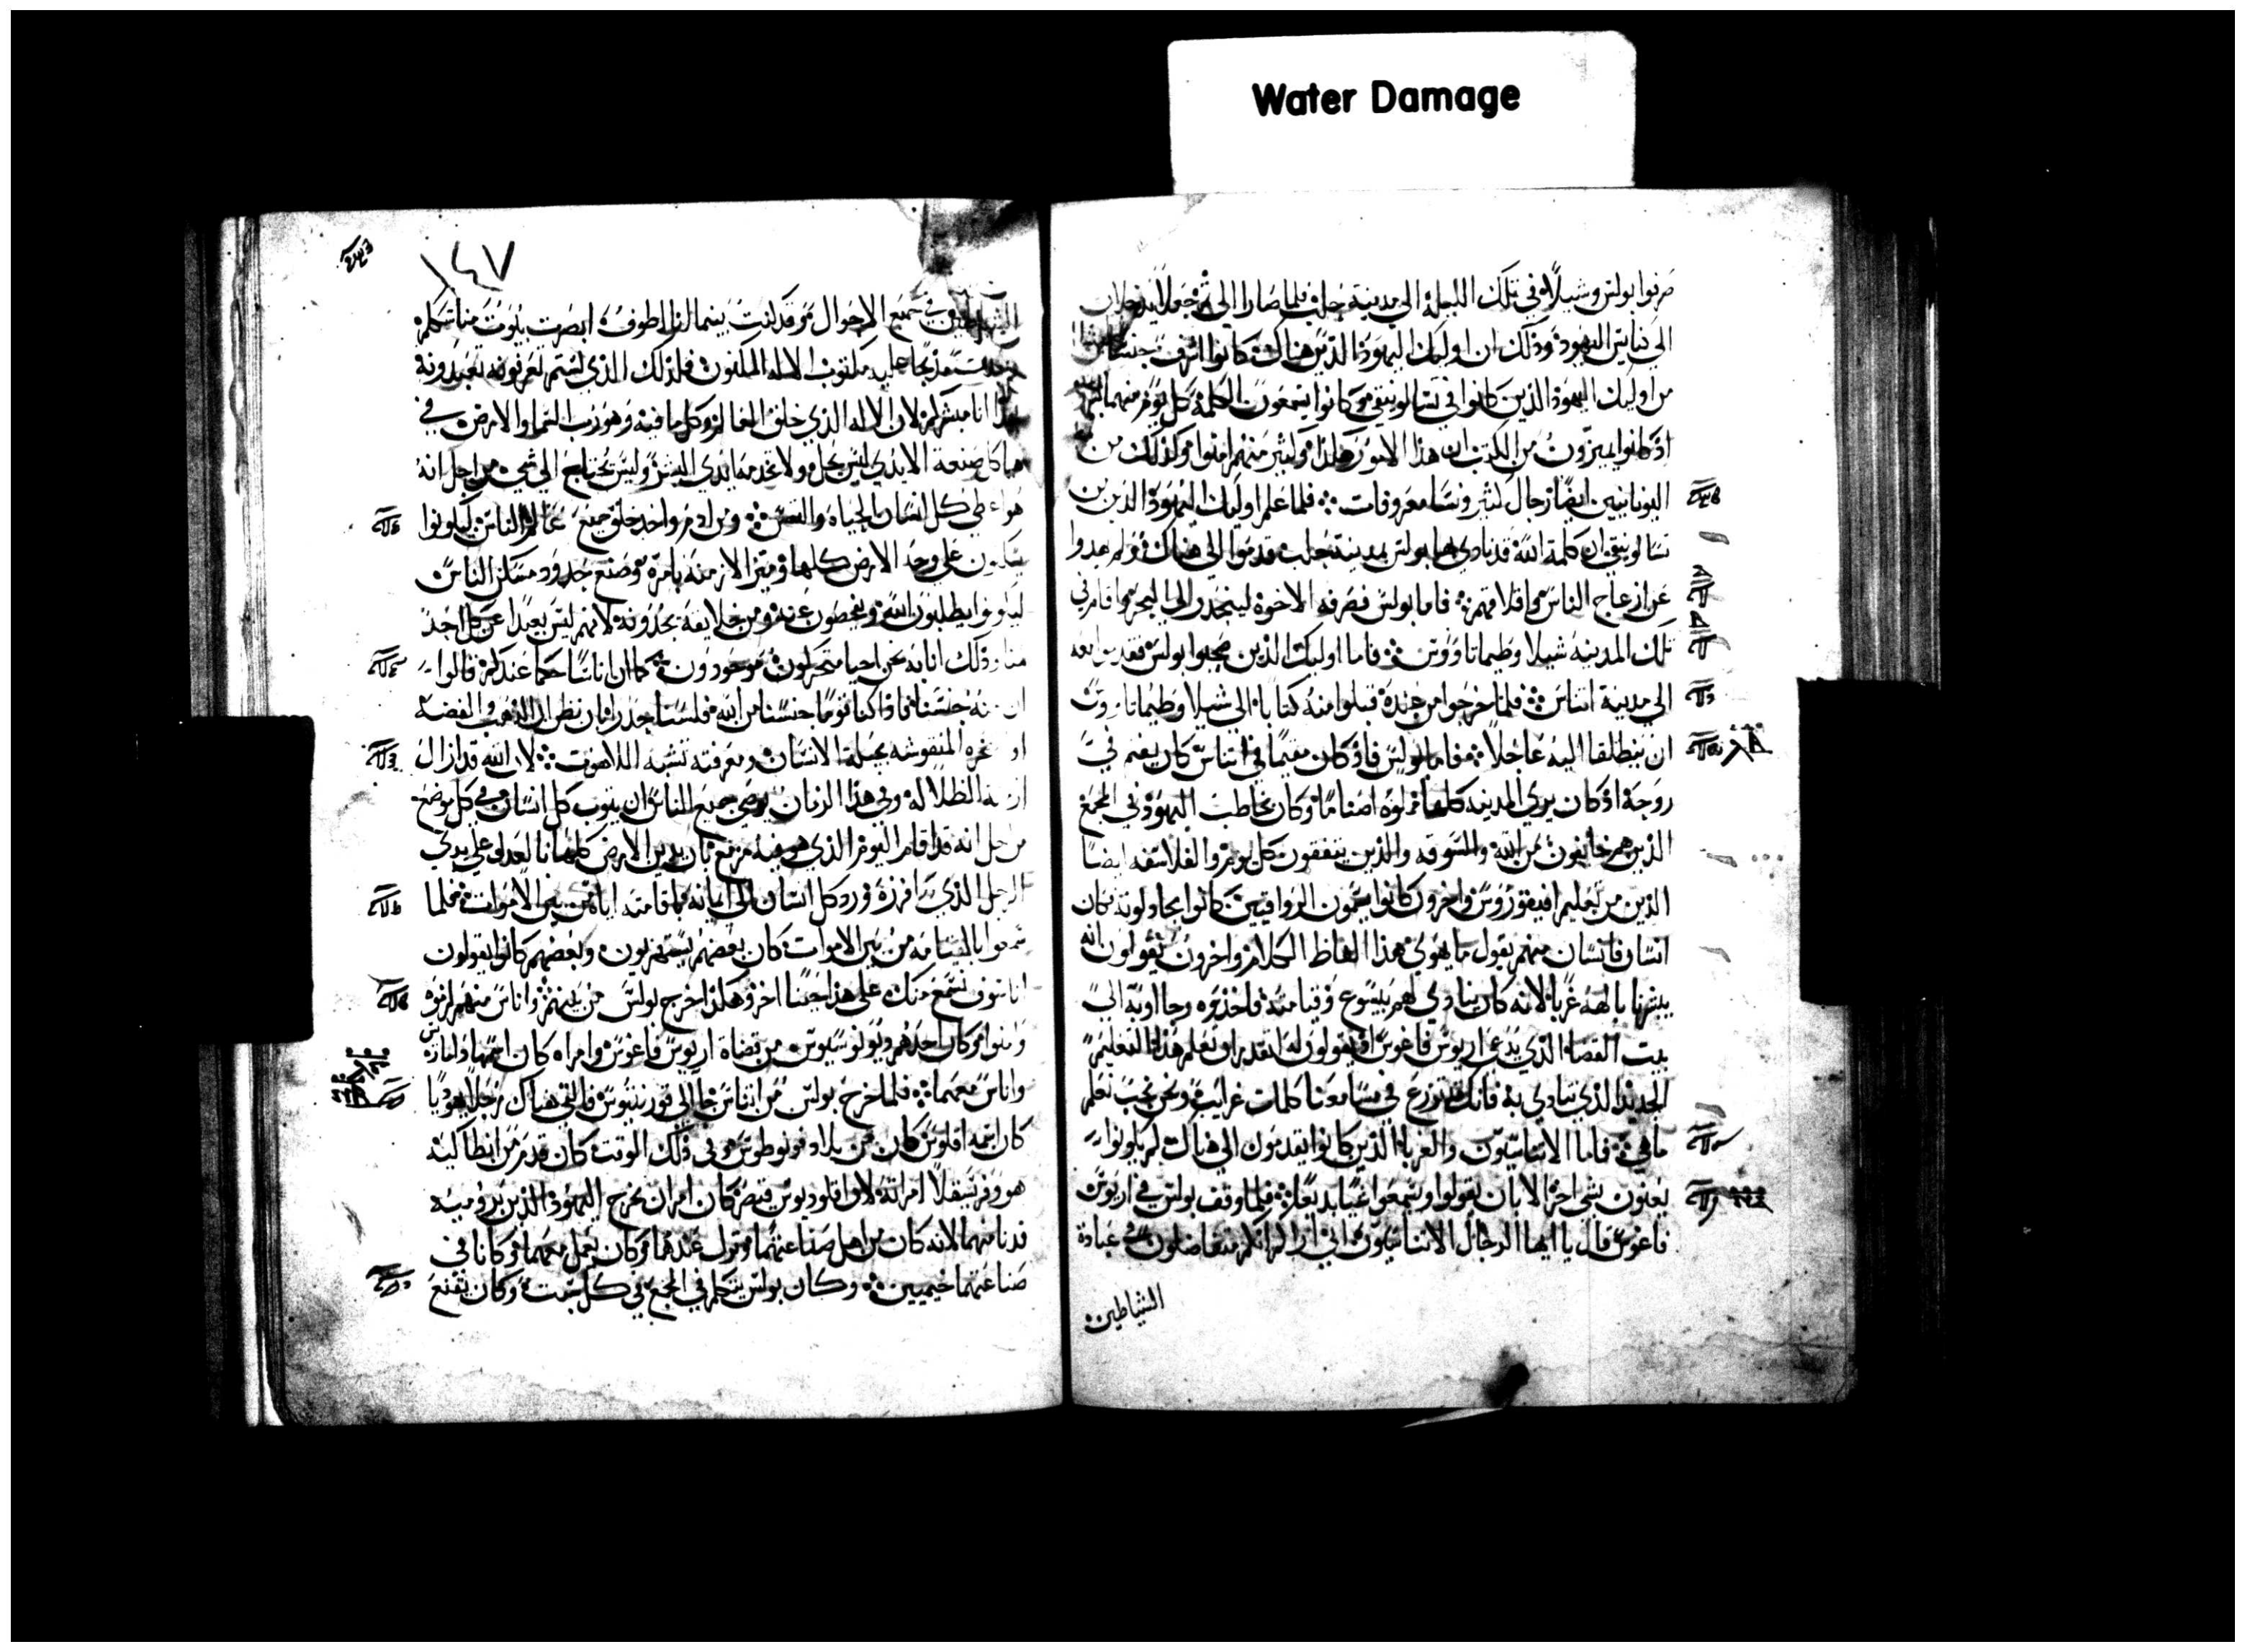 Water Damage
صرفوا بولس وشيلا في تلك الليلة الى مدينة حلب فلما صارا الى ثم جعلا يدخلان
الى كنايس اليهود وذلك ان اوليك اليهود الذين هناك كانوا اشرف جنسا
من اوليك اليهود الذين كانوا في تسالونيقي وكانوا يسمعون الكلمة كل يوم منهما
اذ كانوا يميزون من الكتب ان هذا الامور هكذا وكثير منهم امنوا وكذلك من
اليونانيين ايضا رجال كثير ونسا معروفات فلما علم اوليك اليهود الذين من
تسالونيقي ان كلمة الله قد نادى بها بولس بمدينة حلب قدموا الى هناك ولم يهدوا
عن ازعاج الناس واقلاقهم فاما بولس فصرفه الاخوة لينحدر الى البحر واقام في
تلك المدينة شيلا وطيماتاووس فاما اوليك الذين صحبوا بولس فقدموا معه
الى مدينة اتناس فلما خرجوا من عنده قبلوا منه كتابا الى شيلا وطيماتاووس
ان ينطلقا اليه عاجلا فاما بولس فاذ كان مقيما في اتناس كان يغتم في
روحه اذ كان يرى المدينه كلها مملوه اصناما وكان يخاطب اليهود في المجمع
الذين هم خايفون من الله والسوقه والذين يتفقون كل يوم والفلاسفه ايضا
الذين من تعليم افيقوروس واخرون كانوا يسمون الرواقيين كانوا يجادلونه فكان
انسان فانسان منهم يقول ما يهوى هذا لقاط الكلام واخرون يقولون انه
يبشرنا بالهه غربا لانه كان ينادي لهم بيسوع وقيامته فاخذوه وجاوا به الى
بيت القضاه الذي يدعى اريوس فاغوس اذ يقولون له انقدر ان نعلم هذا التعليم
الجديد الذي تنادي به فانك تزرع في مسامعنا كلمات غرايب ونحن نحب نعلم
ما هي فاما الاتناسيون والغربا الذين كانوا يقدمون الى هناك لم يكونوا
يعنون بشي اخر الا بان يقولوا ويسمعوا شيا بديعا فلما وقف بولس في اريوس
فاغوس قال يا ايها الرجال الاتناسيون اني اراكم متفاضلون في عبادة
الشياطين
١٤٧
الشياطين في جميع الاحوال وقد كنت بينما انا اطوف ابصرت بيوت مناسككم
مذبحا عليه مكتوب الاله المكنون فلذلك الذي لستم تعرفونه تعبدونه
بهذا انا مبشركم لان الاله الذي خلق العالم وكل ما فيه وهو رب السما والارض في
هياكل صنعة الايدي ليس يحل ولا تخدمه ايدي البشر وليس يحتاج الى شي من اجل انه
هو اعطى كل انسان الحياة والنفس ومن ادم واحد خلق جميع عالم الناس ليكونوا
يسكنون على وجه الارض كلها وميز الازمنه بامره وصنع حدود مسكن الناس
ليكونوا يطلبون الله ويفحصون عنه ومن خلايقه يجدونه لانه ليس بعيدا عن كل احد
منا وذلك انا به نحن احيا متحركون موجودون كما ان اناسا حكما عندكم قالوا
ان منه جنسنا فاذ كنا قوما جنسنا من الله فلسنا جدرا بان نظن ان الذهب والفضه
او الصخره المنقوشه بحيلة الانسان ومعرفته تشبه اللاهوت لان الله قد ازال
ازمنة الظلاله وفي هذا الزمان يوصي جميع الناس ان يتوب كل انسان في كل موضع
من اجل انه قد اقام اليوم الذي هو فيه مزمع بان يدين الارض كلها بالعدل على يدي
الرجل الذي افرزه ورد كل انسان الى ايمانه باقامته اياه من بين الاموات فلما
سمعوا بالقيامه من بين الاموات كان بعضهم يستهزيون وبعضهم كانوا يقولون
انا سوف نسمع منك على هذا حينا اخر وهكذا خرج بولس من بينهم واناس منهم لزموه
وامنوا وكان احدهم ديونوسيوس من قضاة اريوس فاغوس وامراه كان اسمها دامارس
واناس معهما فلما خرج بولس من اتناس جا الى قورنتيوس فالقى هناك رجلا يهوديا
كان اسمه اقلوس كان من بلاد فونطوس وفي ذلك الوقت كان قدم من ايطاكيه
هو وفريسقلا امراته لان اقلوديوس قيصر كان امر ان يخرج اليهود الذين بروميه
فدنا منهما لانه كان من اهل صناعتهما ونزل عندهما وكان يعمل معهما وكانا في
صناعتهما خيميين وكان بولس يتكلم في المجمع في كل سبت وكان يقنع